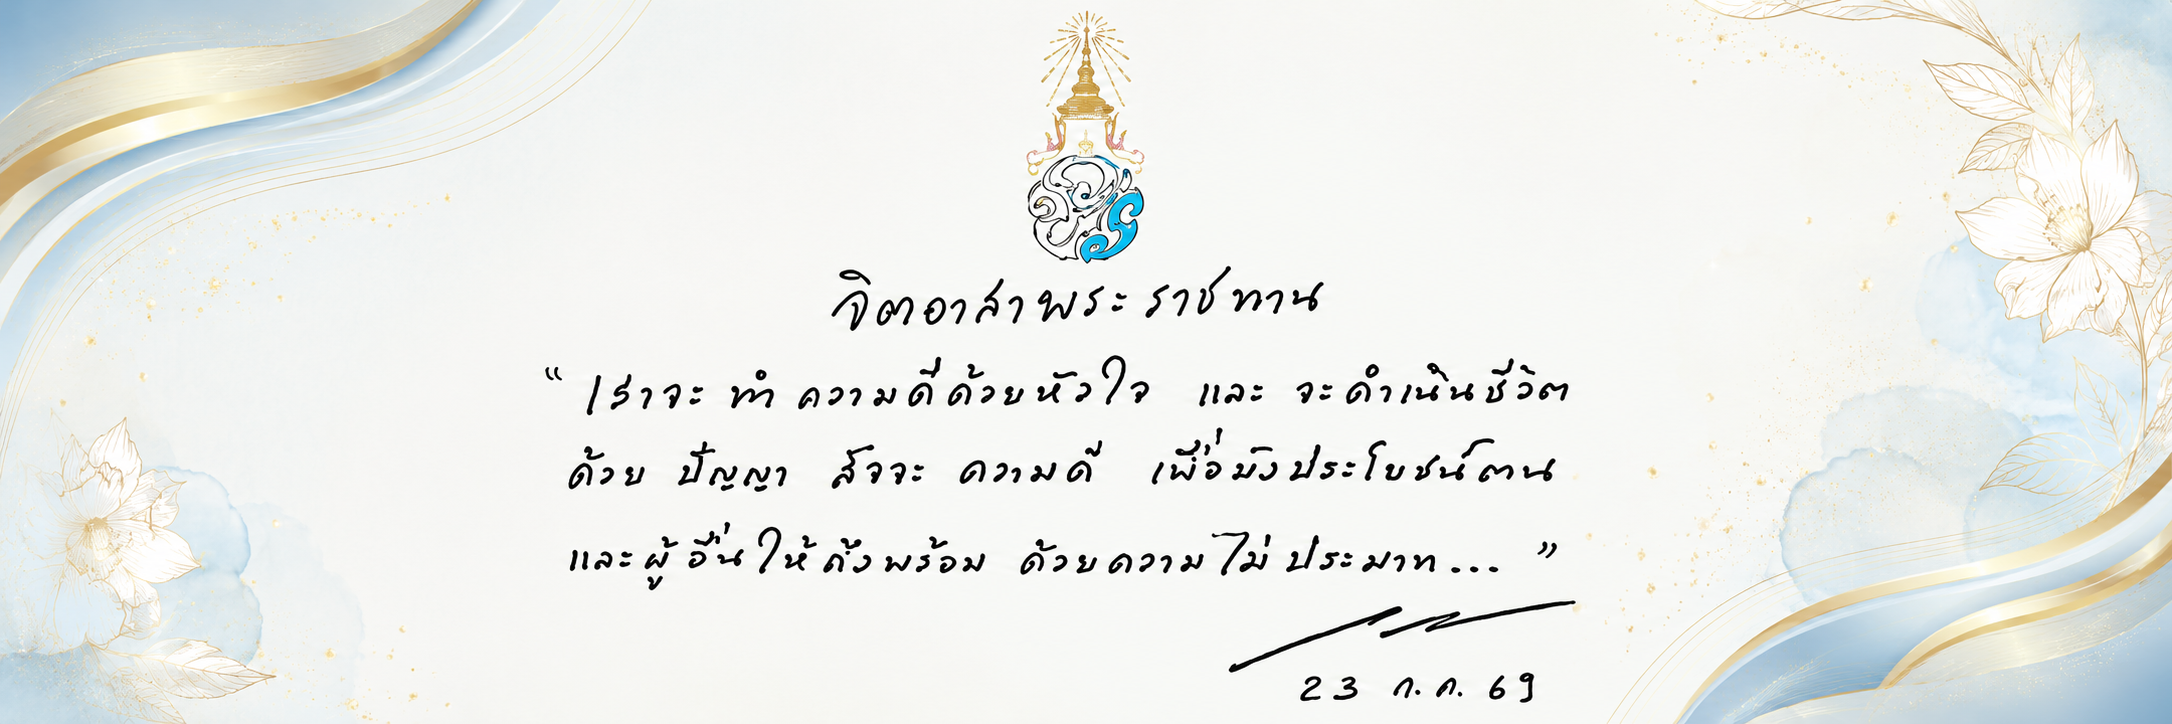 จิตอาสาพระราชทาน
“ เราจะ ทำ ความดีด้วยหัวใจ และ จะดำเนินชีวิต
ด้วย ปัญญา สัจจะ ความดี เพื่อยังประโยชน์ตน
และผู้อื่นให้ถึงพร้อม ด้วยความไม่ประมาท... ”
23 ก.ค. 69